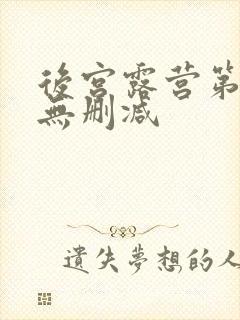 後宮露营第
無删減
遺失夢想的人